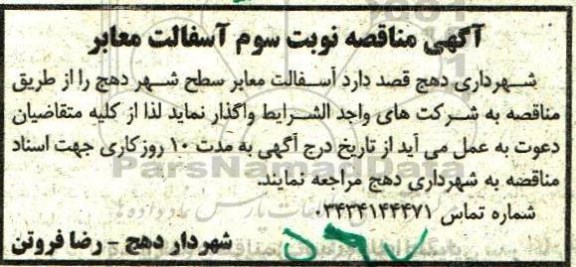 آگهی مناقصه نوبت سوم آسفالت معابر
شهرداری دهج قصد دارد آسفالت معابر سطح شهر دهج را از طریق
مناقصه به شرکت های واجد الشرایط واگذار نماید لذا از کلیه متقاضیان
دعوت به عمل می آید از تاریخ درج آگهی به مدت ۱۰ روز کاری جهت اسناد
مناقصه به شهرداری دهج مراجعه نمایند.
ParsNamadData
شماره تماس ۰۳۴۳۴۱۴۴۴۷۱
شهردار دهج - رضا فروتن